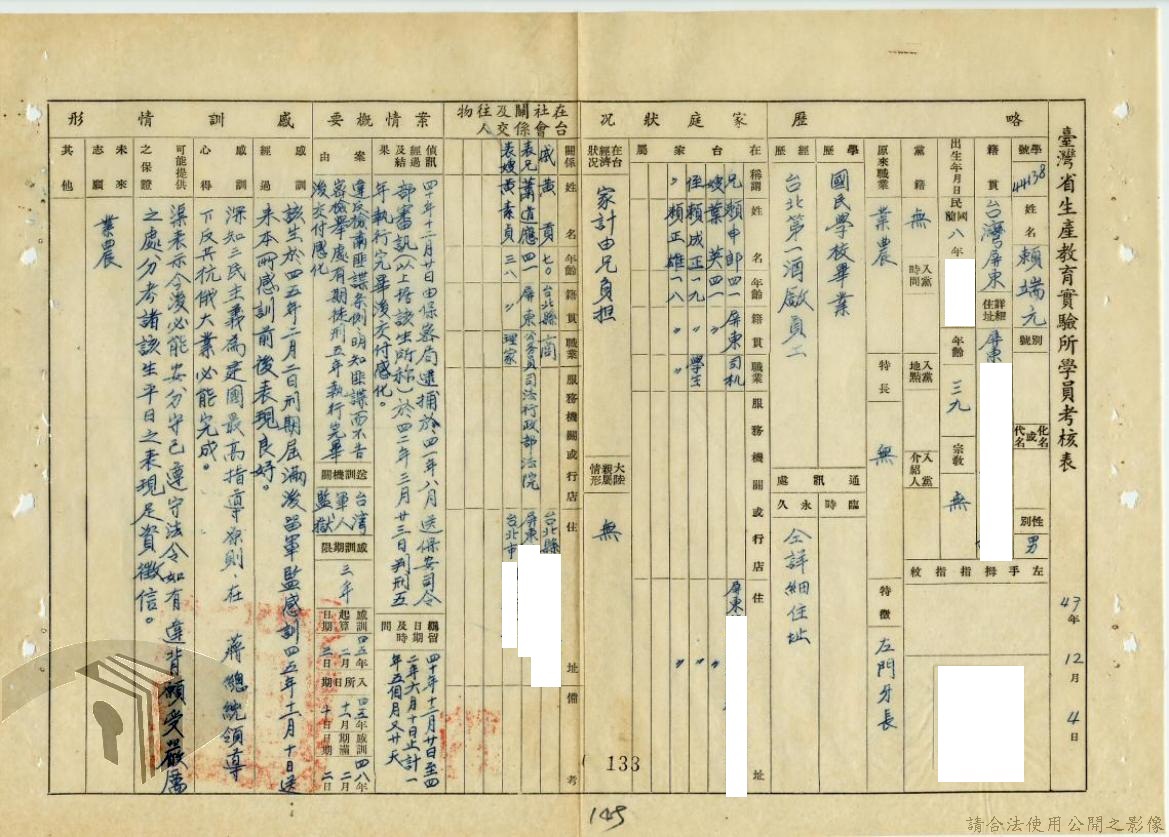 臺灣省生產教育實驗所學員考核表
47年12月4日
略歷
學號 44138
姓名 賴端元
別號
化名或代名
性別 男
籍貫 台灣屏東
詳細住址 屏東
出生年月日 民國前 八年
年齡 三九
宗教 無
左手拇指指紋
黨籍 無
入黨時間
入黨地點
入黨介紹人
原來職業 業農
特長 無
特徵 左門牙長
學歷 國民學校畢業
經歷 台北第一酒廠員工
通訊處
臨時 永久
仝詳細住址
家庭狀況
在台家屬
稱謂 姓名 年齡 籍貫 職業 服務機關或行店 住址
兄 賴申郎 四一 屏東 司机 屏東
嫂 葉英 四一 〃 〃
侄 賴成正 一九 〃 學生 〃
〃 賴正雄 一八 〃 〃 〃
在台經濟狀況 家計由兄負担
大陸親屬情形 無
在台社會關係及交往人物
關係 姓名 年齡 籍貫 職業 服務機關或行店 住址 備考
戚 黃貢 七〇 台北縣 商 台北縣
表兄 蕭道應 四一 屏東 公務員 司法行政部法院 屏東
表嫂 黃素貞 三八 〃 理家 台北市
案情概要
偵訊經過及結果
四十年十二月廿日由保密局逮捕於四一年八月送保安司令
部審訊(以上據該生所称)於四二年三月廿三日判刑五
年執行完畢後交付感化。
羈留日期及時間
四十年十二月廿日至四
二年六月十日止計一
年五個月又廿天
案由
違反檢肅匪諜条例明知匪諜而不告
密檢舉處有期徒刑五年執行完畢
後交付感化
送訓機關 台灣軍人監獄
感訓期限 三年
感訓起算日期 四五年二月二日
入所日期 四五年十一月十日
感訓期滿日期 四八年二月二日
感訓情形
感訓經過
該生於四五年二月二日刑期屆滿後留軍監感訓四五年十一月十日送
來本所感訓前後表現良好。
感訓心得
深知三民主義為建國最高指導原則.在 蔣總統領導
下反共抗俄大業必能完成。
可能提供之保證
渠表示今後必能安分守己遵守法令如有違背願受嚴厲
之處分考諸該生平日之表現足資徵信。
未來志願 業農
其他
133
145
請合法使用公開之影像